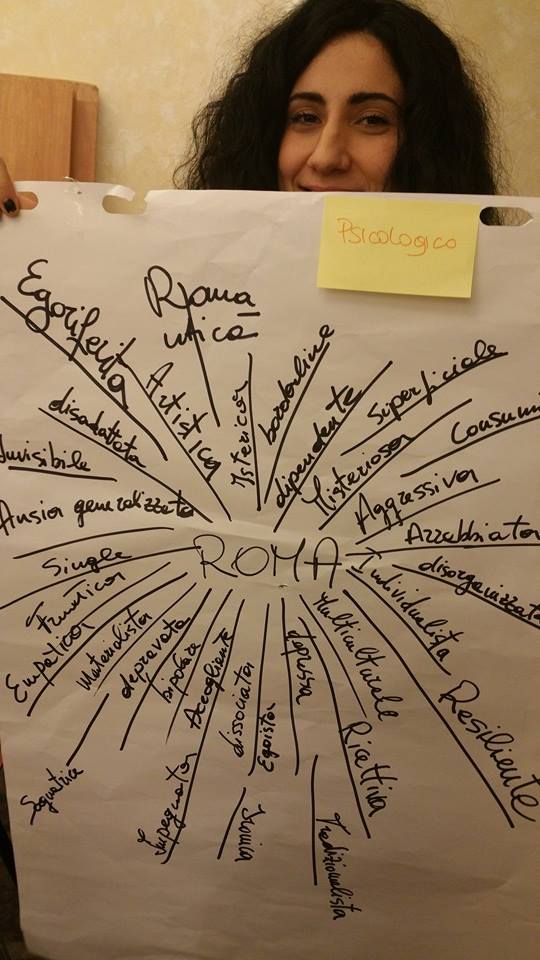 Psicologico
Egoriferita
Roma
ntica
Artistica
Isterica
borderline
dipendente
Superficiale
Misteriosa
Consumi
Aggressiva
Arrabbiata
disorganizzata
Individualista
Resiliente
Multiculturale
Ricettiva
Tradizionalista
depressa
Egoista
Ironica
dissociata
Accogliente
Impegnata
bipolare
depravata
Sognatrice
Materialista
Empatica
Frenetica
Single
Ansia generalizzata
Invisibile
disadattata
ROMA